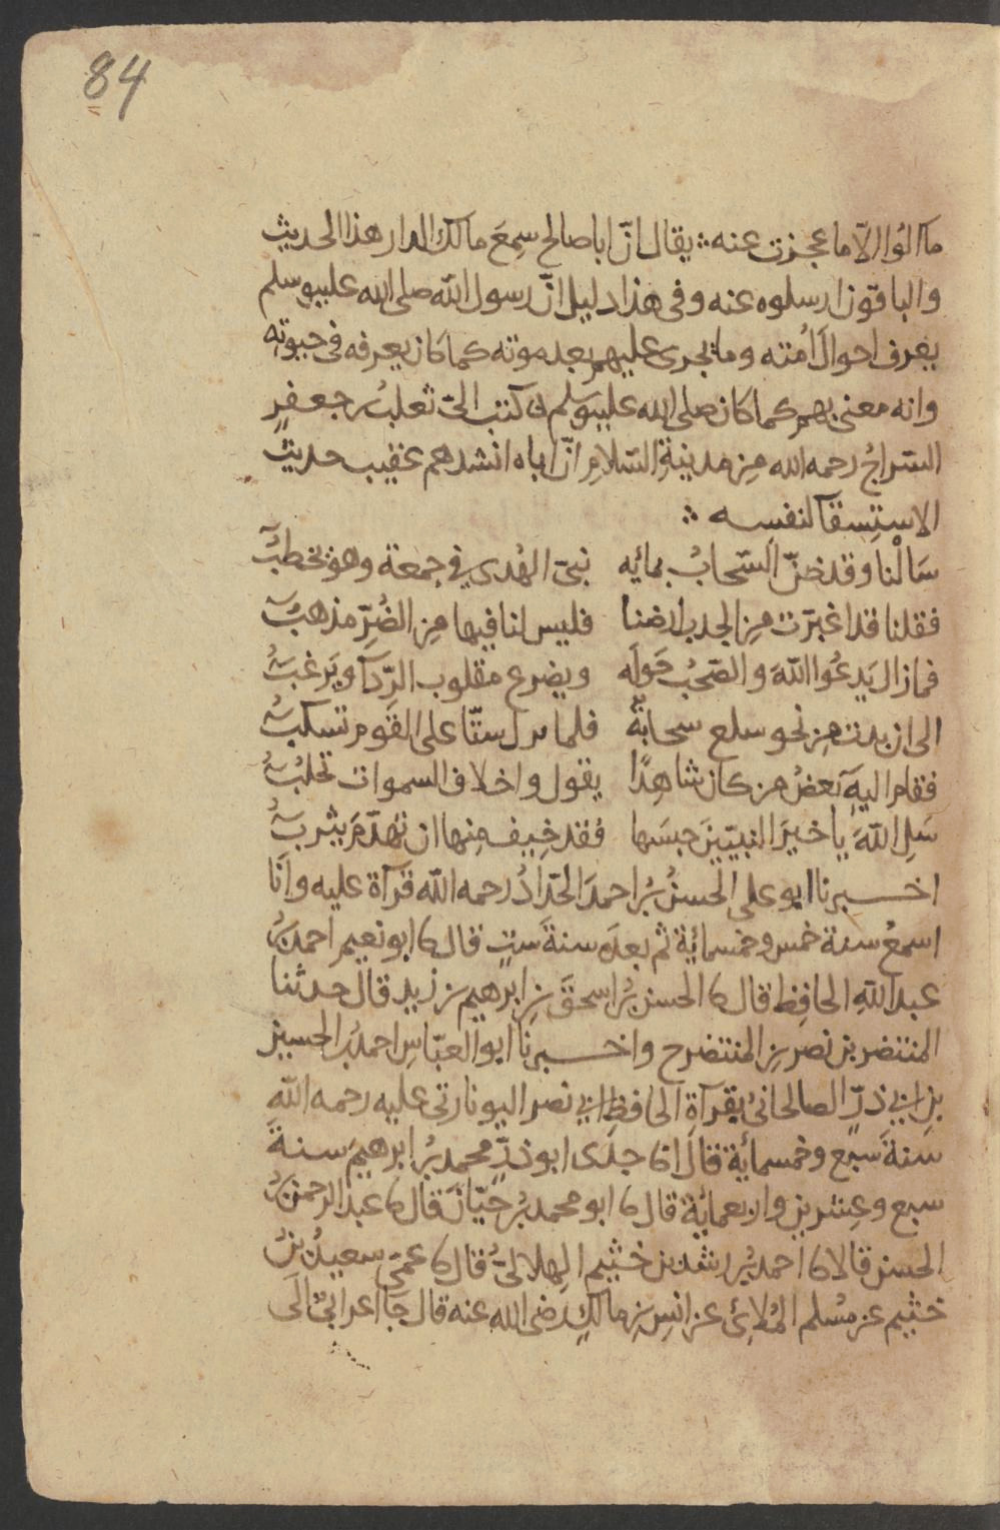 84
ما الوا الّا ما عجزت عنه ∴ يقال انّ ابا صالح سمِعَ مالك الدار هذا الحديث
والباقون ارسلوه عنه وفى هذا دليل انّ رسول الله صلى الله عليه وسلم
يعرف احوالَ اُمته وما يجرى عليهم بعد موته كما كان يعرفه فى حيوتِه
وانه معنى بهم كما كان صلى الله عليه وسلم كتب الىّ ثعلبُ بن جعفرٍ
السراجُ رحمه الله مِن مدينةِ السّلامِ انّ اباه انشدهم عقيب حديث
الاستسقآ لنفسه ∴
سَالْنا وقد ضنّ السّحابُ بمائِه نبىّ الهُدى فى جمعة وهو يخطبُ
فقلنا قد اغبرّت مِن الجدب ارضنا فليس لنا فيها مِن الضُرِّ مذهبُ
فما زال يَدعُوا اللهَ والصّحْبُ حَولَه ويضرع مقلوب الرِّدآ ويَرغبُ
الى ان بدت مِن نحو سلع سحابةٌ فلما ستّا على القوم تسكبُ
فقام اليهِ بَعضُ من كان شاهِدًا يقول واخلاف السموات تحلبُ
سَلِ اللهَ يا خيرَ النبيّينَ حبسَها فقد خِيف مِنها ان تهدّمَ يثربُ
اخــبرنا ابو على الحسنُ بنُ احمدَ الحدّادُ رحمه الله قرآة عليه وانَا
اسمعُ سنة خمس وخمسمائية ثم بعدَه سنةَ ستٍ قال نا ابو نعيم احمد بنُ
عبد اللهِ الحافِظ قال نا الحسن بنُ اسحقَ بنِ ابرهيم بن زيد قال حدثنا
المنتضر بن نصر بنِ المنتضرح واخــبرنا ابو العبّاسِ احمد بنُ الحسين
بنِ ابى ذرٍّ الصالحانىُ بقرآةِ الحافظِ ابى نصر اليونارتى عليه رحمه الله
سَنةَ سَبع وخمسمائية قال انا جدى ابو ذرٍّ محمد بنُ ابرهيمَ سنةَ
سبع وعشرين واربعمائية قال نا ابو محمد بنُ حيّانَ قال نا عبد الرحمن بنُ
الحسن قالا نا احمد بنُ رشد بن خثيم الهلالىُّ قال نا عمّى سعيدُ بنُ
خثيم عن مسلم المُلائىّ عن انسِ بنِ مالكٍ رضى الله عنه قال جآ اعرابىّ الَى